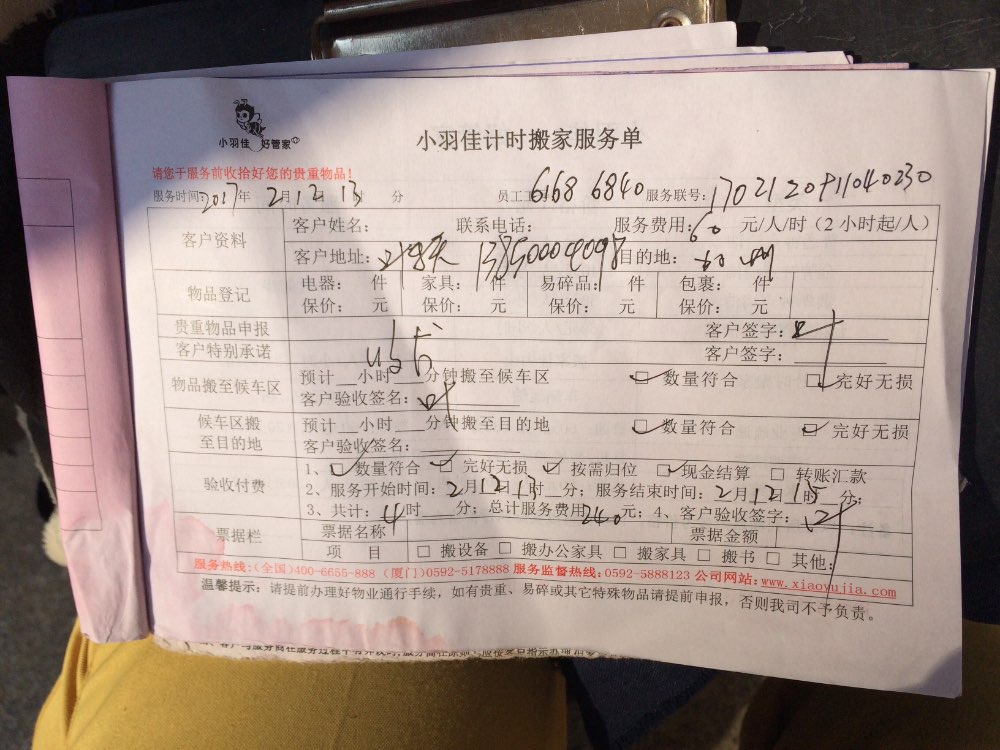 小羽佳 好管家
小羽佳计时搬家服务单
请您于服务前收拾好您的贵重物品！
服务时间：2017年 2月12日 13时 分 员工工号 6168 6840 服务联号：
客户资料 客户姓名： 联系电话： 服务费用：60 元/人/时（2小时起/人）
客户地址： 目的地：
物品登记 电器： 件 家具： 件 易碎品： 件 包裹： 件
保价： 元 保价： 元 保价： 元 保价： 元
贵重物品申报 客户签字：
客户特别承诺 客户签字：
物品搬至候车区 预计__小时___分钟搬至候车区 数量符合 完好无损
客户验收签名：
候车区搬至目的地 预计__小时___分钟搬至目的地 数量符合 完好无损
客户验收签名：
验收付费 1、 数量符合 完好无损 按需归位 现金结算 转账汇款
2、服务开始时间：2月12日13时__分；服务结束时间：2月12日15时__分；
3、共计：4时___分；总计服务费用240元；4、客户验收签字：
票据栏 票据名称 票据金额
项 目 搬设备 搬办公家具 搬家具 搬书 其他：
服务热线：(全国)400-6655-888 (厦门)0592-5178888 服务监督热线：0592-5888123 公司网站：www.xiaoyujia.com
温馨提示：请提前办理好物业通行手续，如有贵重、易碎或其它特殊物品请提前申报，否则我司不予负责。